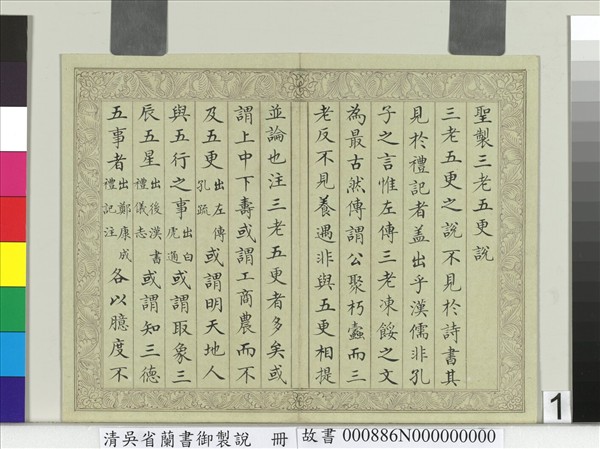 聖製三老五更說
三老五更之說不見於詩書其
見於禮記者蓋出乎漢儒非孔
子之言惟左傳三老凍餒之文
為最古然傳謂公聚朽蠹而三
老反不見養遇非與五更相提
並論也注三老五更者多矣或
謂上中下壽或謂工商農而不
及五更出左傳孔疏或謂明天地人
與五行之事出白虎通或謂取象三
辰五星出後漢書禮儀志或謂知三德
五事者出鄭康成禮記注各以臆度不
1
清吳省蘭書御製說 冊
故書 000886N000000000